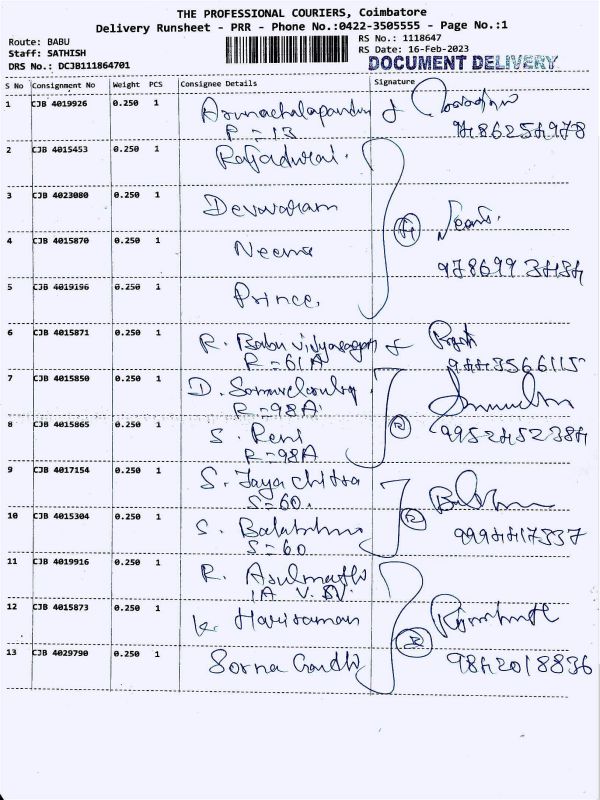 THE PROFESSIONAL COURIERS, Coimbatore
Delivery Runsheet - PRR - Phone No.:0422-3505555 - Page No.:1
Route: BABU
Staff: SATHISH
DRS No.: DCJB111864701
RS No.: 1118647
RS Date: 16-Feb-2023
DOCUMENT DELIVERY
S No Consignment No Weight PCS Consignee Details Signature
1 CJB 4019926 0.250 1 Arunachalapandian &
R = 13
2 CJB 4015453 0.250 1 Rajadurai.
3 CJB 4023080 0.250 1 Devavaram
4 CJB 4015870 0.250 1 Neema
5 CJB 4019196 0.250 1 Prince.
6 CJB 4015871 0.250 1 R. Babu vidyasagar &
R = 61A 9443566115
7 CJB 4015850 0.250 1 D.
R = 98A
8 CJB 4015865 0.250 1 S. Reni 9952452384
R = 98A
9 CJB 4017154 0.250 1 S. Jaya chitra
S = 60.
10 CJB 4015304 0.250 1 S.
S = 60
11 CJB 4019916 0.250 1 R. Arulmathi
1A V. SV.
12 CJB 4015873 0.250 1 K. Hariraman
13 CJB 4029790 0.250 1 Sorna Gandhi 9842018836